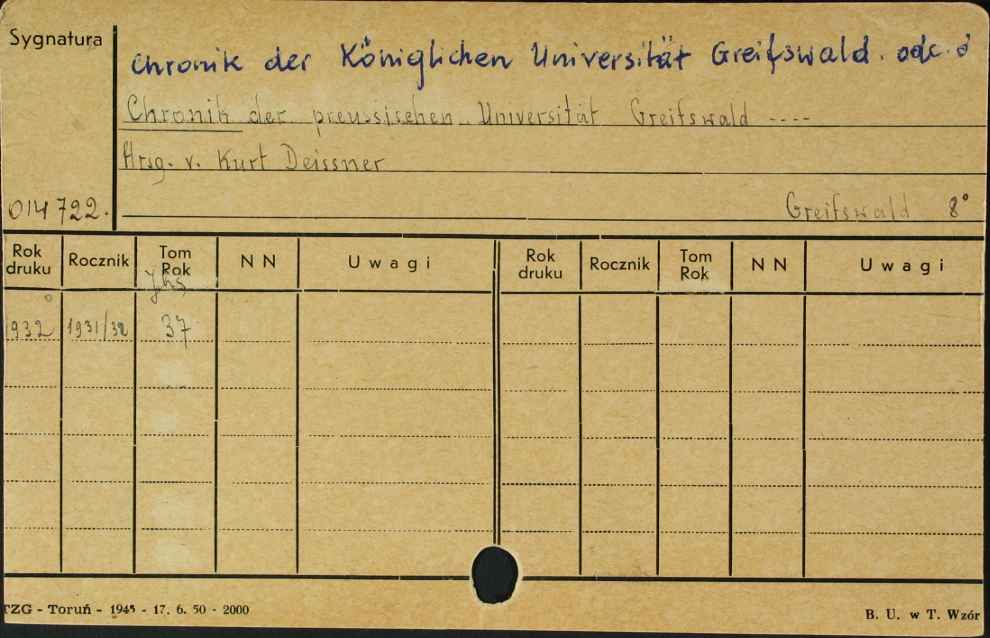 Sygnatura
Chronik der Königlichen Universität Greifswald. odc. 8
Chronik der preussischen Universität Greifswald ----
Hrsg. v. Kurt Deissner
014722.
Greifswald 8°
Rok druku Rocznik Tom Rok NN Uwagi Rok druku Rocznik Tom Rok NN Uwagi
Jhg
1932 1931/32 37
TZG - Toruń - 1945 - 17. 6. 50 - 2000
B. U. w T. Wzór